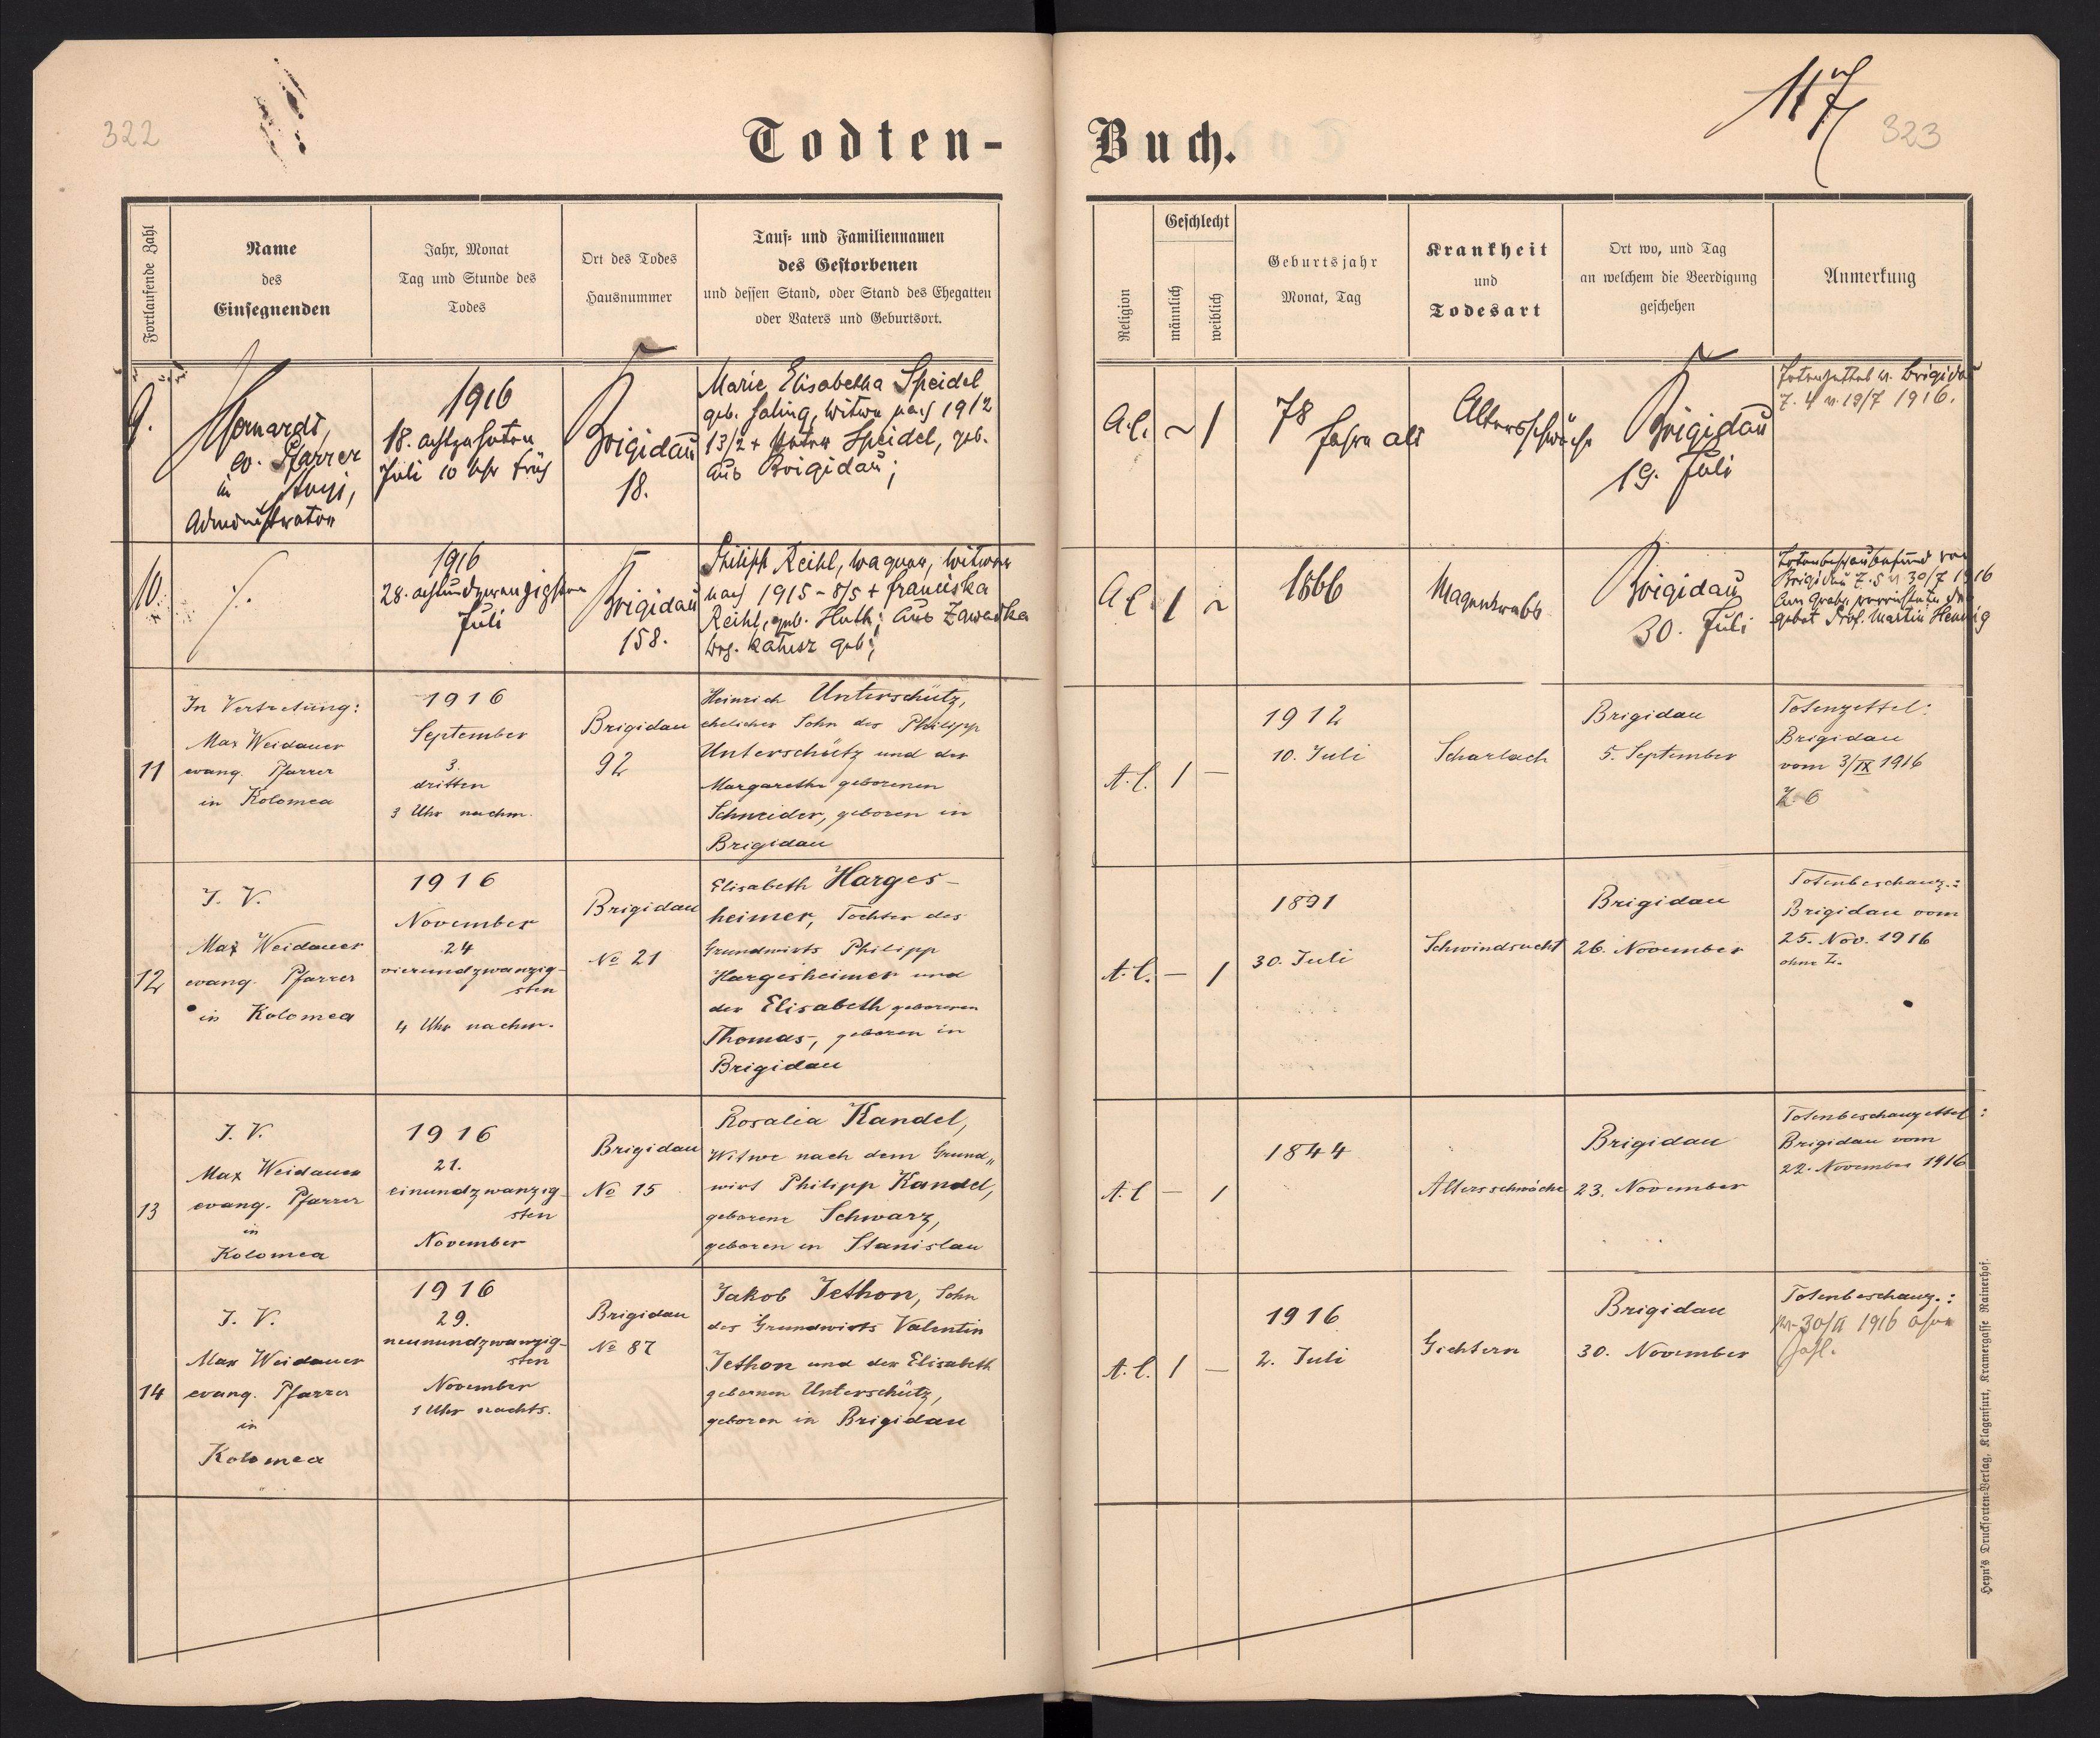 322
Todten-
Buch.
117
323
Fortlaufende Zahl
Name
des
Einsegnenden
Jahr, Monat
Tag und Stunde des
Todes
Ort des Todes
Hausnummer
Tauf- und Familiennamen
des Gestorbenen
und dessen Stand, oder Stand des Ehegatten
oder Vaters und Geburtsort.
Religion
Geschlecht
männlich
weiblich
Geburtsjahr
Monat, Tag
Krankheit
und
Todesart
Ort wo, und Tag
an welchem die Beerdigung
geschehen
Anmerkung
9.
ev. Pfarrer
in Stryj,
Administrator
1916
18. achtzehnten
Juli 10 Uhr früh
Brigidau
18.
Marie Elisabetha Speidel
geb. Witwe nach 1912
13/2 + Speidel, geb.
aus Brigidau;
A.C.
~
1
78
Jahre alt
Altersschwäche
Brigidau
19. Juli
Totenzettel v. Brigidau
Z. 4 v. 19/7 1916.
10.
1916
28. achtundzwanzigsten
Juli
Brigidau
158.
Philipp Reihl, Wagner, Witwer
nach 1915 - 8/5 + Franciska
Reihl, geb. Huth; aus Zawadka
Bez. Kałusz geb;
A.C.
1
~
1866
Magenkrebs
Brigidau
30. Juli
Totenbeschaubefund von
Brigidau Z. 5 v 30/7 1916
Am Grabe verrichtete das
Gebet Prof. Martin Hennig
11
In Vertretung:
Max Weidauer
evang. Pfarrer
in Kolomea
1916
September
3.
dritten
3 Uhr nachm.
Brigidau
92
Heinrich Unterschütz,
ehelicher Sohn des Philipp
Unterschütz und der
Margarethe geborenen
Schneider, geboren in
Brigidau
A.C.
1
—
1912
10. Juli
Scharlach
Brigidau
5. September
Totenzettel:
Brigidau
vom 3/IX 1916
Z. 6
12
I. V.
Max Weidauer
evang. Pfarrer
in Kolomea
1916
November
24
vierundzwanzig-
sten
4 Uhr nachm.
Brigidau
No 21
Elisabeth Harges-
heimer, Tochter des
Grundwirts Philipp
Hargesheimer und
der Elisabeth geborenen
Thomas, geboren in
Brigidau
A.C.
—
1
1891
30. Juli
Schwindsucht
Brigidau
26. November
Totenbeschauz.:
Brigidau vom
25. Nov. 1916
ohne Z.
13
I. V.
Max Weidauer
evang. Pfarrer
in
Kolomea
1916
21.
einundzwanzig-
sten
November
Brigidau
No 15
Rosalia Kandel,
Witwe nach dem Grund„
wirt Philipp Kandel,
geborene Schwarz,
geboren in Stanislau
A.C
—
1
1844
Altersschwäche
Brigidau
23. November
Totenbeschauzettel:
Brigidau vom
22. November 1916
14
I. V.
Max Weidauer
evang. Pfarrer
in
Kolomea
1916
29.
neunundzwanzig-
sten
November
1 Uhr nachts.
Brigidau
No 87
Jakob Jethon, Sohn
des Grundwirts Valentin
Jethon und der Elisabeth
gebornen Unterschütz,
geboren in Brigidau
A.C.
1
—
1916
2. Juli
Gichtern
Brigidau
30. November
Totenbeschauz.:
1916 ohne
Zahl.
Heyn's Drucksorten-Verlag, Klagenfurt, Kramergasse Rainerhof.